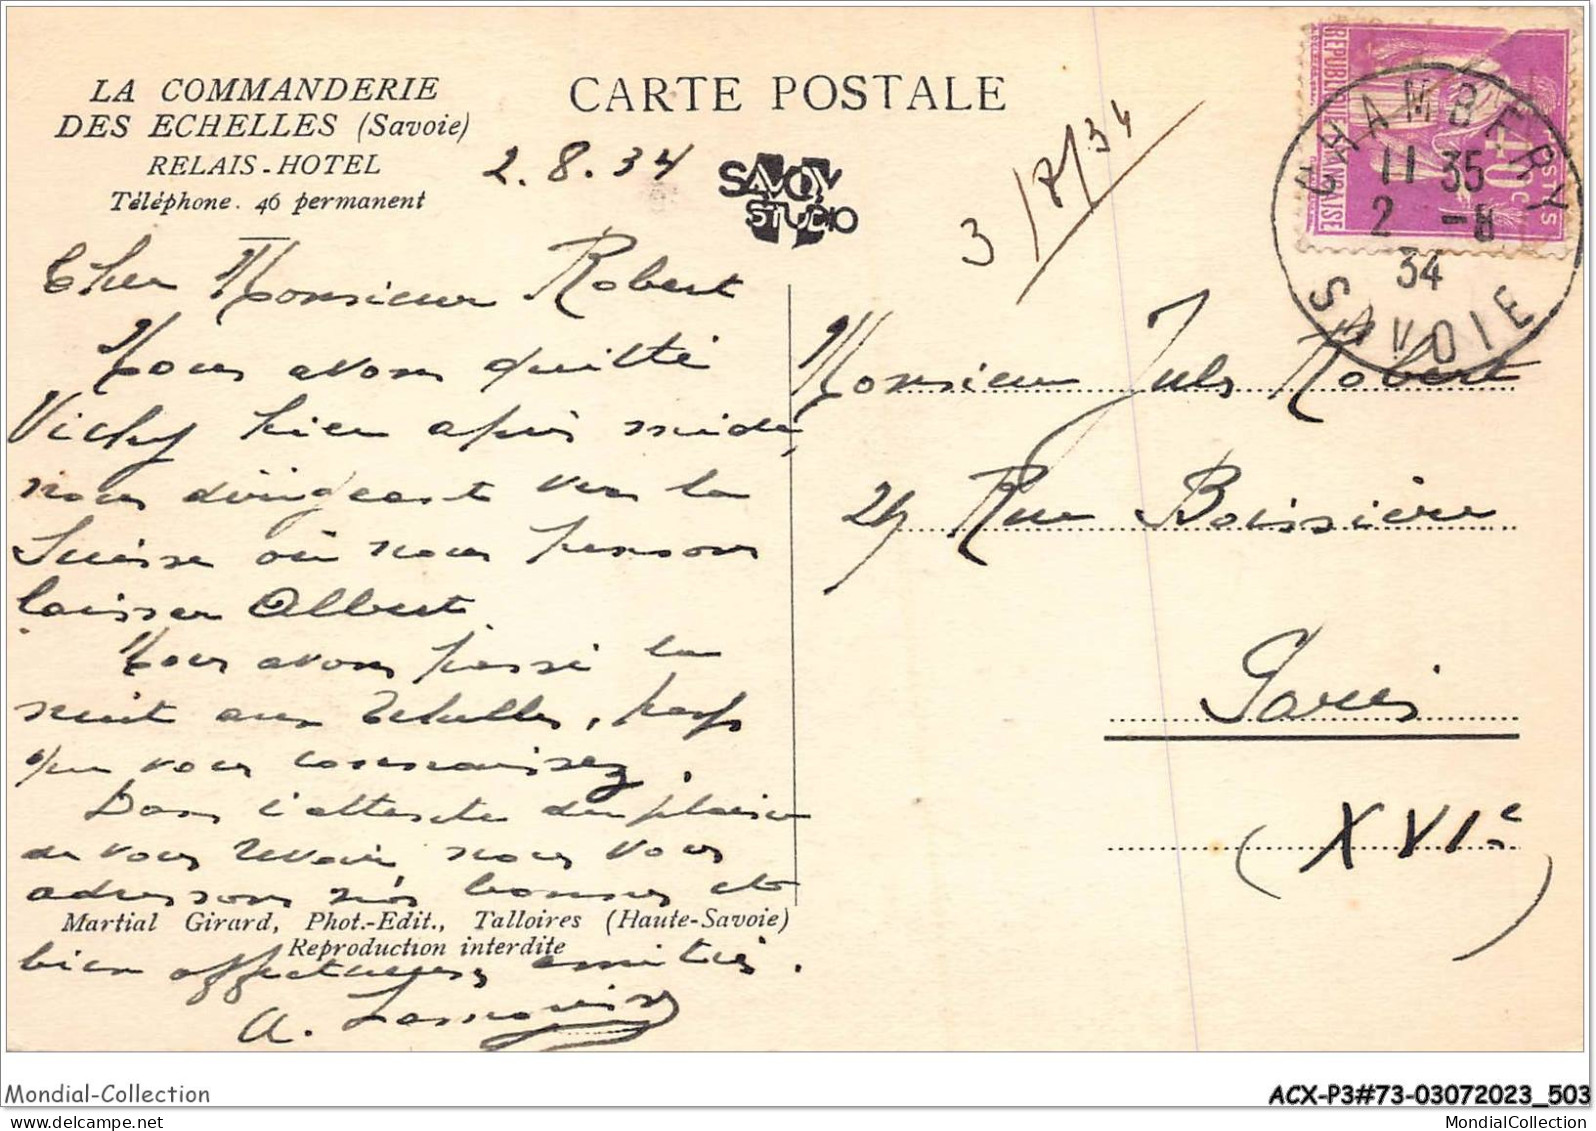 LA COMMANDERIE
DES ECHELLES (Savoie)
RELAIS-HOTEL
Téléphone. 46 permanent
CARTE POSTALE
2.8.34
SAVOY
STUDIO
3/8/34
REPUBLIQUE FRANÇAISE
POSTES
40c
CHAMBERY
11 35
2 -8
34
SAVOIE
Cher Monsieur Robert
Nous avons quitté
Vichy hier après midi,
nous dirigeant vers la
Suisse où nous pensons
laisser Albert.
Nous avons passé la
nuit aux Echelles, pays
que vous connaissez.
Dans l'attente du plaisir
de vous revoir, nous vous
adressons nos bonnes et
bien affectueuses amitiés.
A.
Martial Girard, Phot.-Edit., Talloires (Haute-Savoie)
Reproduction interdite
Monsieur Jules Robert
Rue Boissière
Paris
(XVIe)
Mondial-Collection
ACX-P3#73-03072023_503
MondialCollection